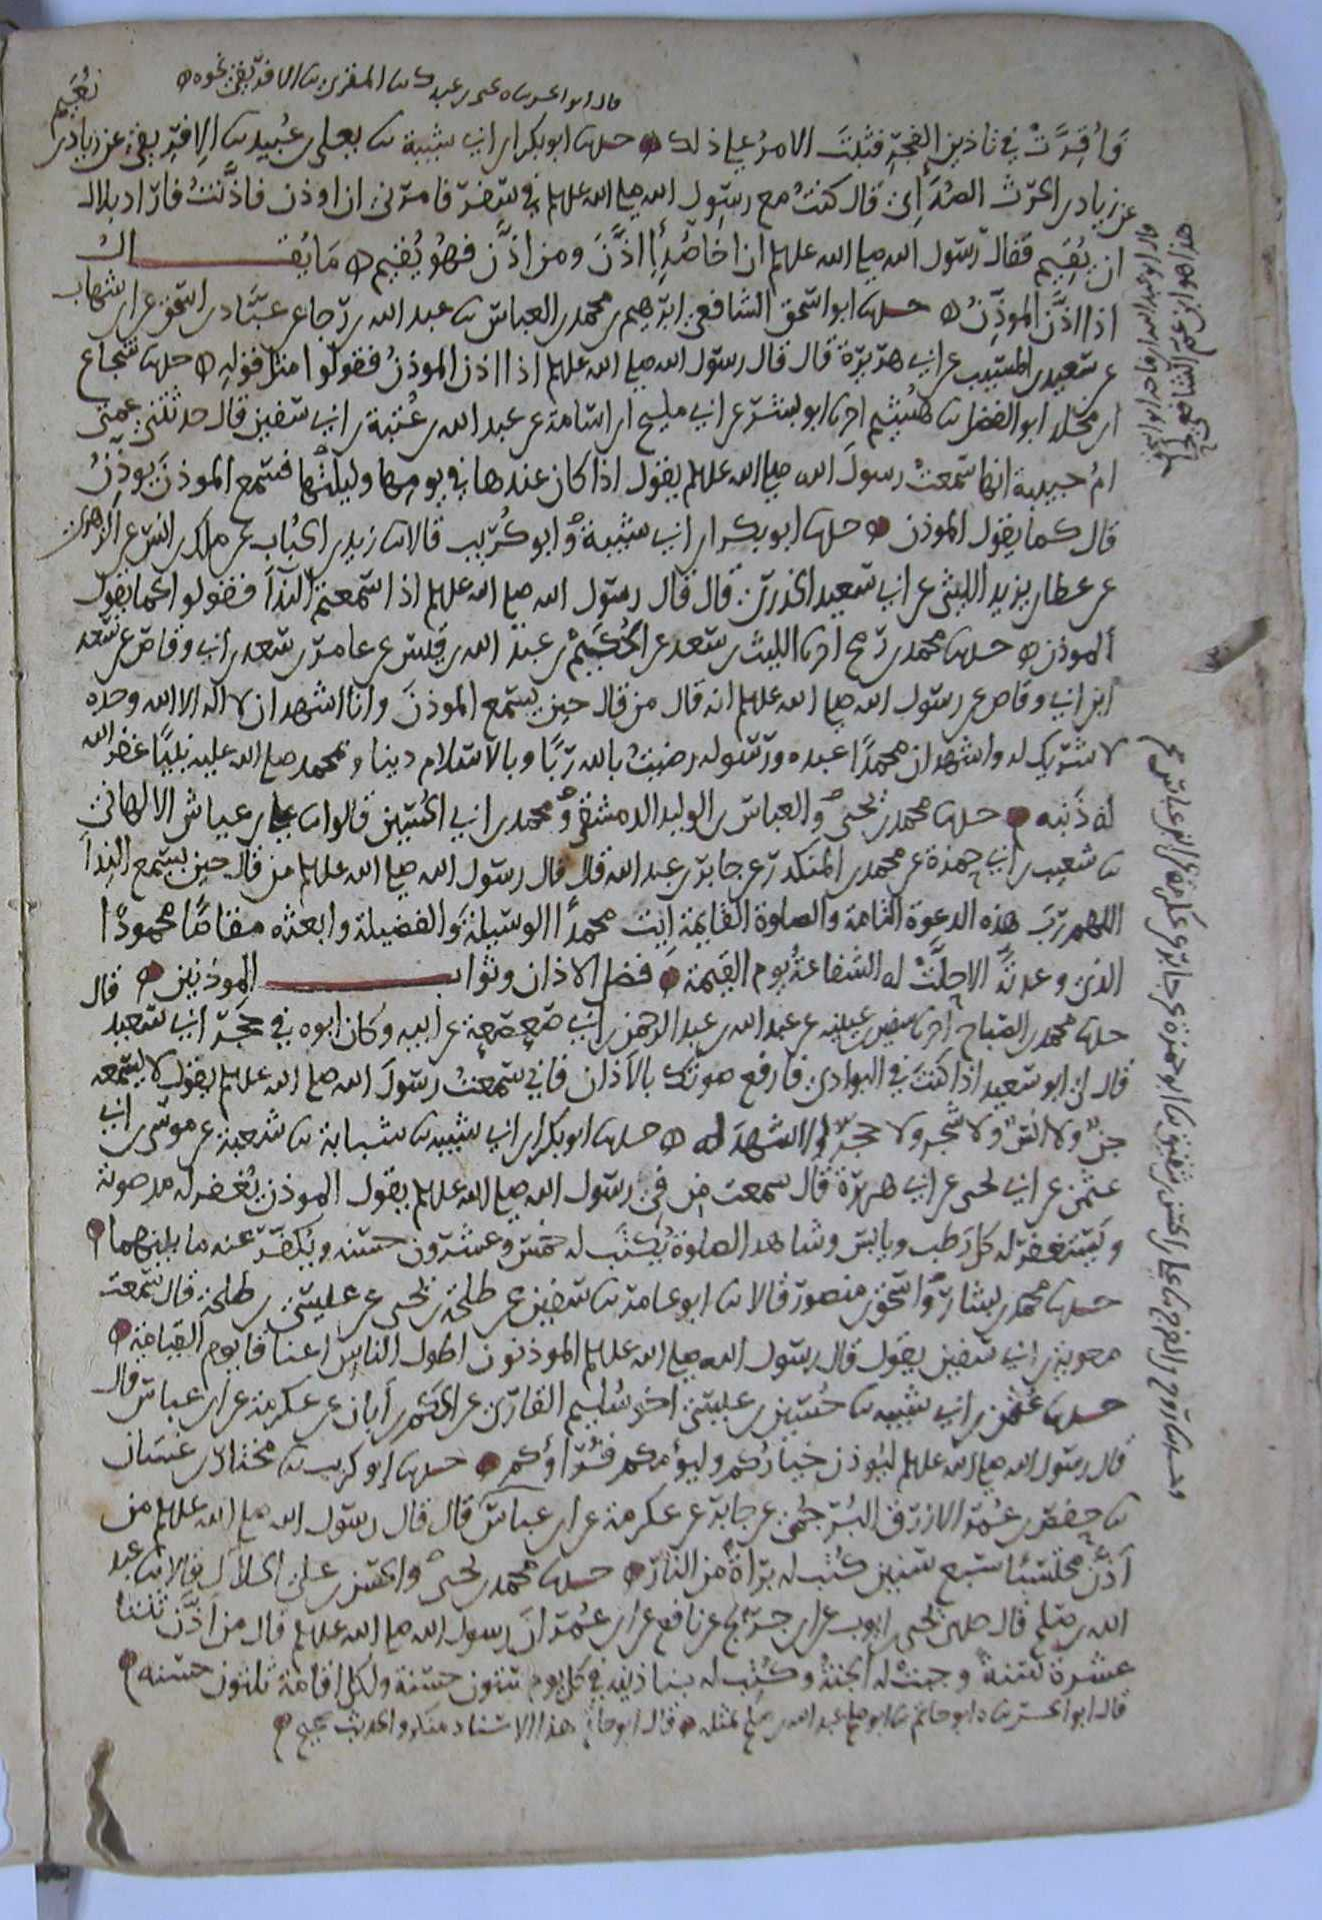 قال ابو الحسن يحيى بن عبدك المقرئ الافريقي نحوه
فأُقِرَّتْ في تاذين الفجر فثبت الامرُ على ذلك حدثنا ابو بكر بن ابي شيبة ثنا يعلى بن عُبيد ثنا الافريقي عن زياد بن
نُعَيم
عن زياد بن الحرث الصُدَائي قال كنتُ مع رسول الله صلى الله عليه وسلم في سفر فامرني ان اوذن فاذّنتُ فاراد بلال
ان يقيم فقال رسول الله صلى الله عليه وسلم ان اخا صُدَاءٍ اذَّن ومن اذَّن فهو يُقيم ما يُقال
اذا اذَّن الموذّنُ حدثنا ابو اسحق الشافعي ابرهيم بن محمد بن العباس ثنا عبد الله بن رجا عن عبّاد بن اسحق عن ابن شهاب
عن سعيد بن المسيب عن ابي هريرة قال قال رسول الله صلى الله عليه وسلم اذا اذن الموذنُ فقولوا مثل قوله حدثنا شجاع
بن مخلد ابو الفضل ثنا هُشيم اخبرنا ابو بشر عن ابي مليح بن اسامة عن عبد الله بن عُتبة بن ابي سفين قال حدثتني عمتي
ام حبيبة انها سمعتْ رسولَ الله صلى الله عليه وسلم يقول اذا كان عندها في يومها وليلتها فسمع الموذنَ يوذّنُ
قال كما يقول الموذن حدثنا ابو بكر بن ابي شيبة وابو كُريب قالا ثنا زيد بن الحُباب عن ملك بن انس عن الزهري
عن عطا بن يزيد الليثي عن ابي سعيد الخدري قال قال رسول الله صلى الله عليه وسلم اذا سمعتم النداَ فقولوا كما يقول
الموذن حدثنا محمد بن رمح اخبرنا الليث بن سعد عن الحُكَيْم بن عبد الله بن قيس عن عامر بن سعد بن ابي وقاص عن سعد
ابن ابي وقاص عن رسول الله صلى الله عليه وسلم انه قال من قال حين يسمع الموذنَ وانا اشهد ان لا اله الا الله وحده
لا شريك له واشهد ان محمدًا عبده ورسوله رضيتُ بالله ربًا وبالاسلام دينا وبمحمد صلى الله عليه نبيًا غفر الله
له ذَنبه حدثنا محمد بن يحيى والعباس بن الوليد الدمشقي ومحمد بن ابي الحسين قالوا ثنا علي بن عياش الالهاني
ثنا شعيب بن ابي حمزة عن محمد بن المنكدر عن جابر بن عبد الله قال قال رسول الله صلى الله عليه وسلم من قال حين يسمع النداَ
اللهم ربَّ هذه الدعوة التامة والصلوة القايمة آت محمدًا الوسيلة والفضيلة وابعثه مقامًا محمودًا
الذي وعدتَّه الا حلَّتْ له الشفاعةُ يوم القيمة فضل الاذان وثواب الموذنين قال
حدثنا محمد بن الصباح اخبرنا سفين بن عيينه عن عبد الله بن عبد الرحمن بن ابي صَعصعة عن ابيه وكان ابوه في حَجْر ابي سعيد
قال لي ابو سعيد اذا كنتَ في البوادي فارفع صوتك بالاَذان فاني سمعتُ رسولَ الله صلى الله عليه وسلم يقول لا يسمعه
جنٌ ولا انسٌ ولا شجر ولا حجرٌ الا شهدَ له حدثنا ابو بكر بن ابي شيبه ثنا شبابة ثنا شعبة عن موسى بن ابي
عثمن عن ابي يحيى عن ابي هريرة قال سمعت من في رسول الله صلى الله عليه وسلم يقول الموذن يُغفر له مدى صوته
ويَستغفر له كل رَطب ويابس وشاهد الصلوة يُكتَب له خمس وعشرون حسنه ويُكفَّر عنه ما بينهما
حدثنا محمد بن بشار واسحق بن منصور قالا ثنا ابو عامر ثنا سفين عن طلحة بن يحيى عن عيسى بن طلحة قال سمعت
معوية بن ابي سفين يقول قال رسول الله صلى الله عليه وسلم الموذنون اطول الناس اعناقا يوم القيامة
حدثنا عُثمن بن ابي شيبه ثنا حُسين بن عيسى اخو سُليم القاري عن الحكم بن ابان عن عكرمة عن ابن عباس قال
قال رسول الله صلى الله عليه وسلم ليُوذن خياركم وليؤمكم قُرّاؤُكم حدثنا ابو كريب ثنا مختار بن غسان
ثنا حفص بن عُمر الازرق البُرجُمي عن جابر عن عكرمة عن ابن عباس قال قال رسول الله صلى الله عليه وسلم من
اَذَّن محتسبًا سبع سنين كُتب له براةٌ من النار حدثنا محمد بن يحيى والحسن بن علي الخلال قالا ثنا عبد
الله بن صلح قال حدثني يحيى بن ايوب عن ابن جريج عن نافع عن ابن عُمر ان رسول الله صلى الله عليه وسلم قال من اَذَّن ثنتا
عشرة سَنةً وجبتْ له الجنةُ وكُتب له بتاذينه في كل يوم ستون حسنة ولكل اقامة ثلثون حسنه
قال ابو الحسن ثنا ابو حاتم ثنا ابو صلح عبد الله بن صلح بمثله قال ابو حاتم هذا الاسناد منكر والحديث صحيح
هذا هو ابن عم الشافعي